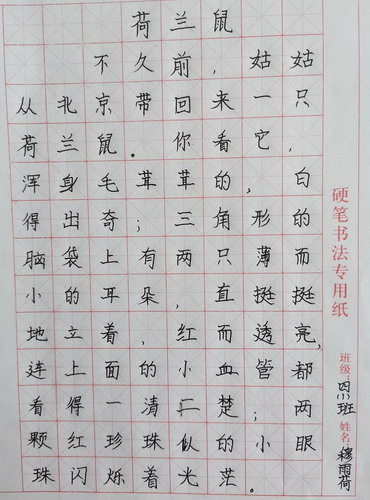 荷兰鼠
不久前,姑姑
从北京带回来一只
荷兰鼠.你看它,
浑身毛茸茸的,白
得出奇;三角形的
脑袋上有两只薄而
小的耳朵,直挺挺
地立着,红而透亮,
连上面的小血管都
看得一清二楚;两
颗红珍珠似的小眼
珠闪烁着光茫.
硬笔书法专用纸
班级:四(1)班 姓名:穆雨荷